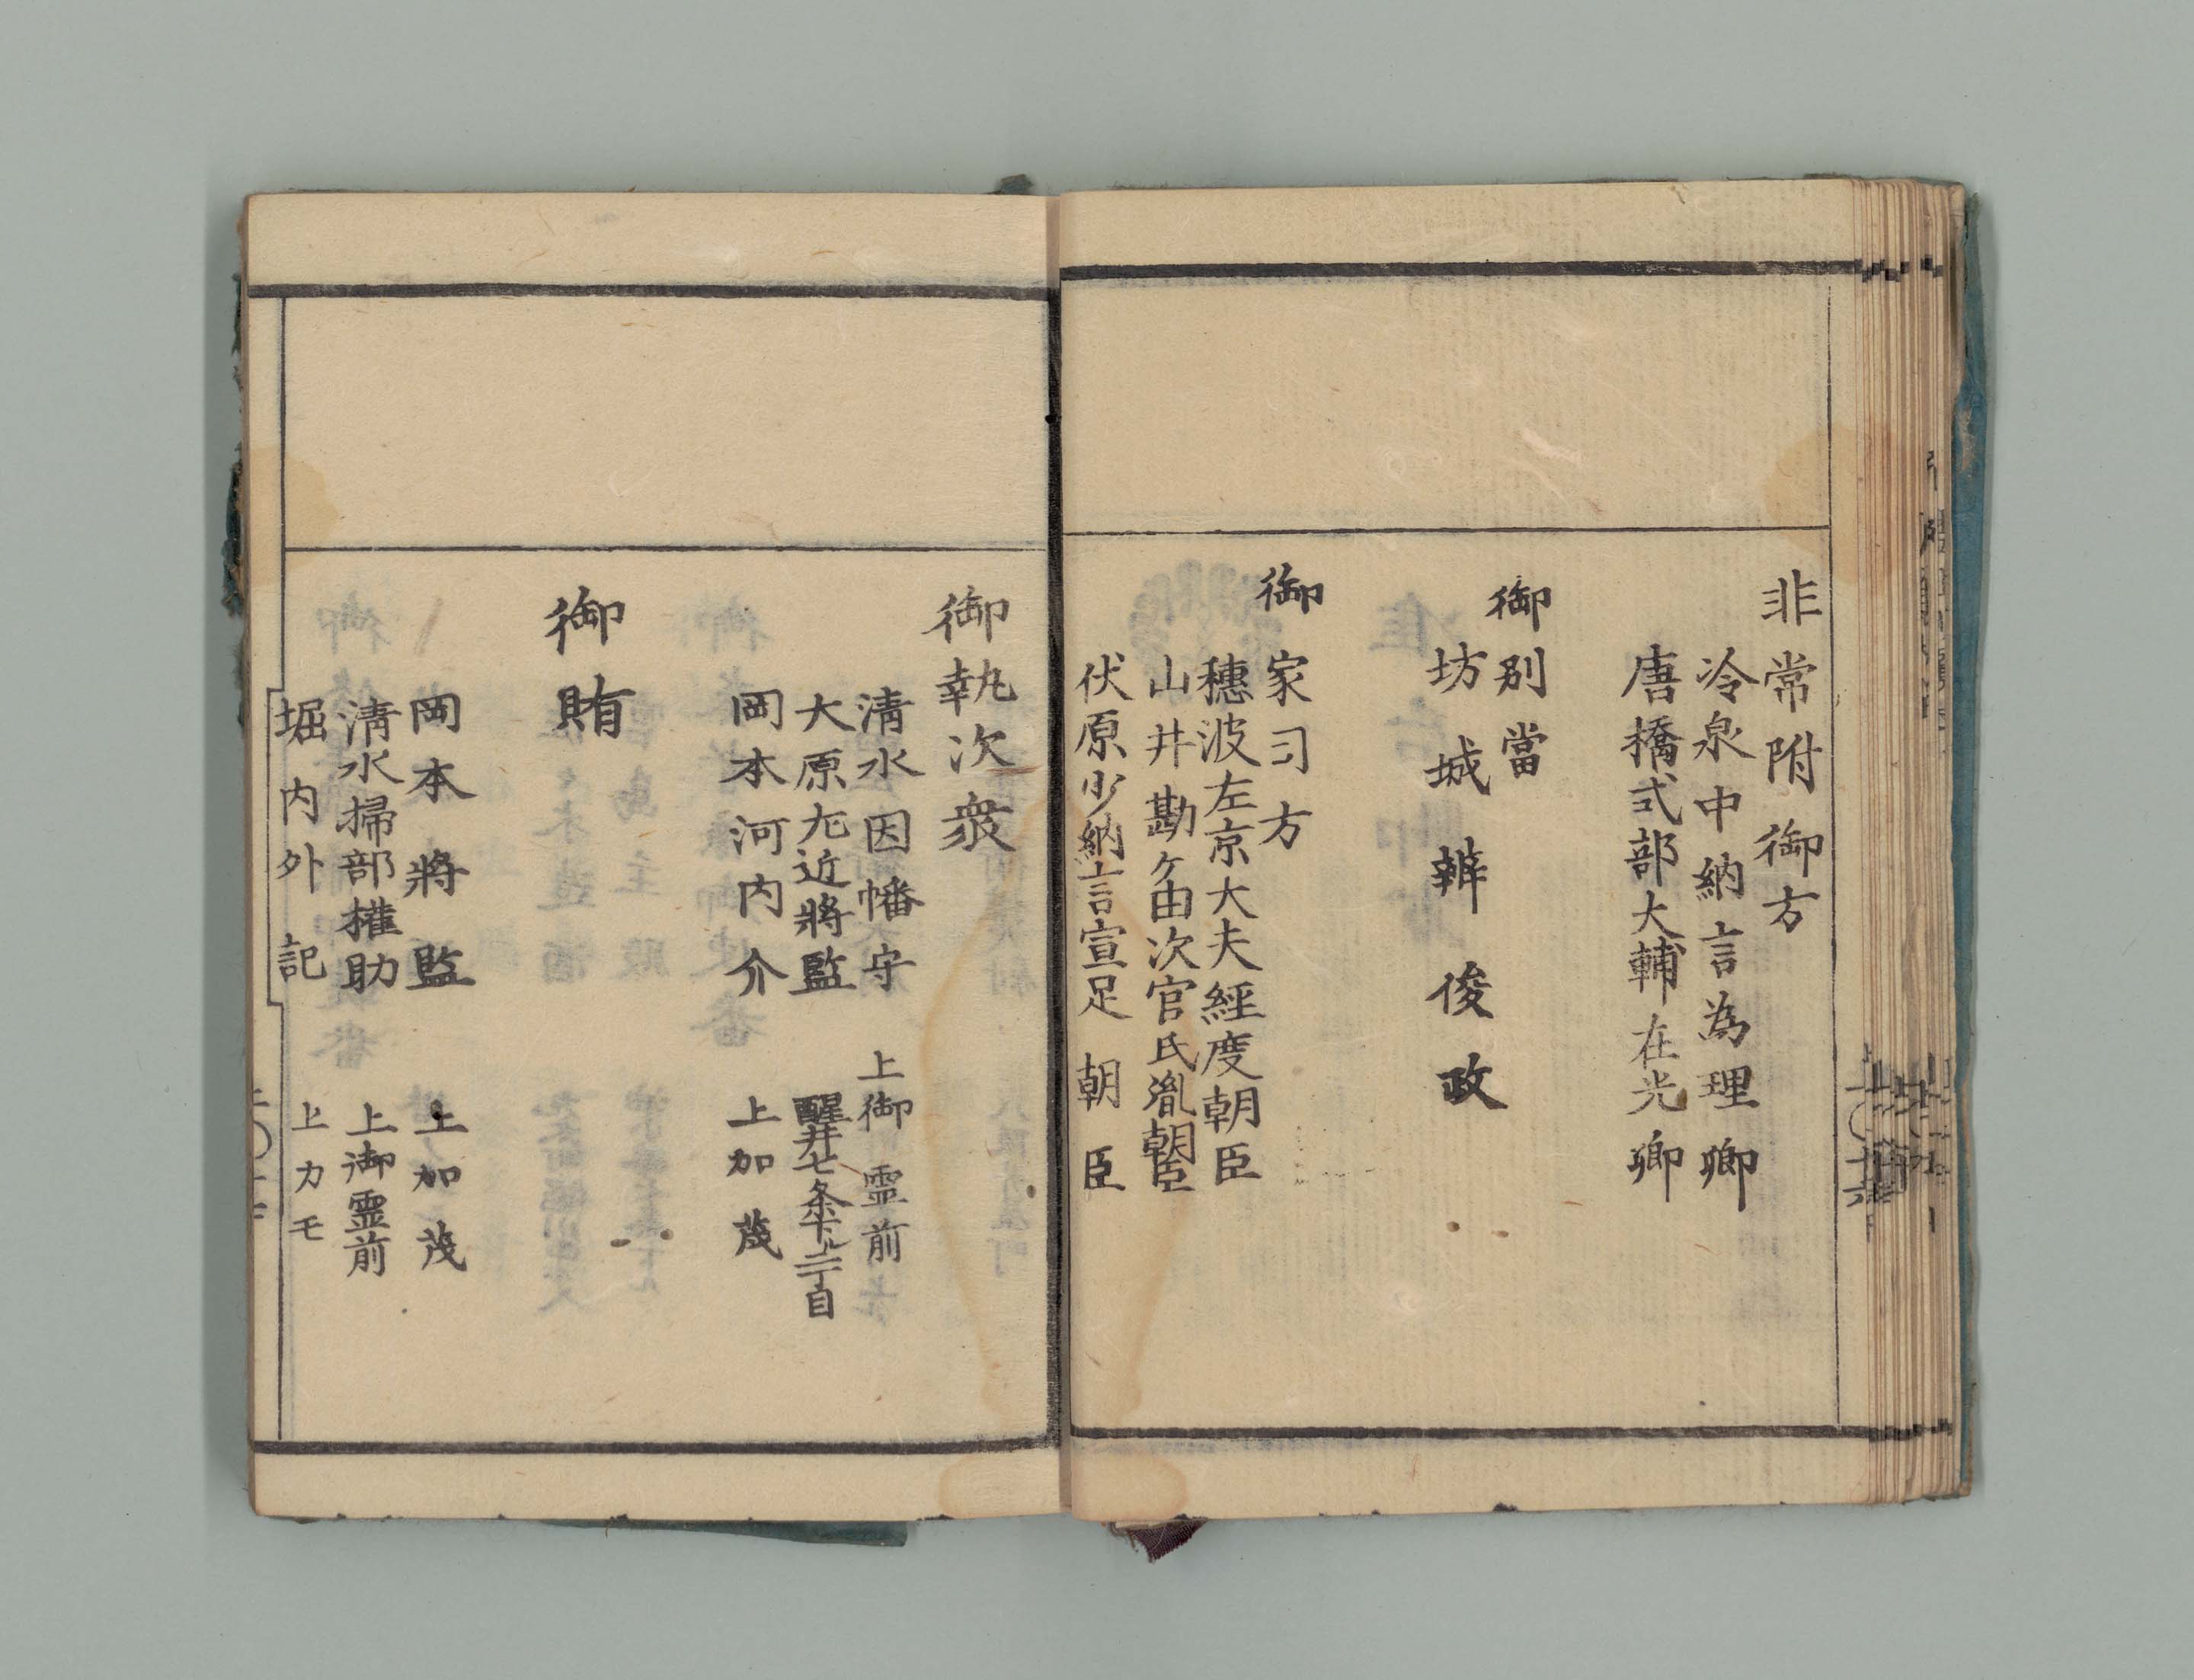 非常附御方
冷泉中納言為理卿
唐橋式部大輔在光卿
御別當
坊城辨俊政
御家司方
穂波左京大夫經度朝臣
山井勘ケ由次官氏胤朝臣
伏原少納言宣足朝臣
御執次衆
清水因幡守 上御霊前
大原左近將監 醒井七条下ル二丁目
岡本河内介 上加茂
御賄
岡本將監 上加茂
清水掃部權助 上御霊前
堀内外記 上カモ